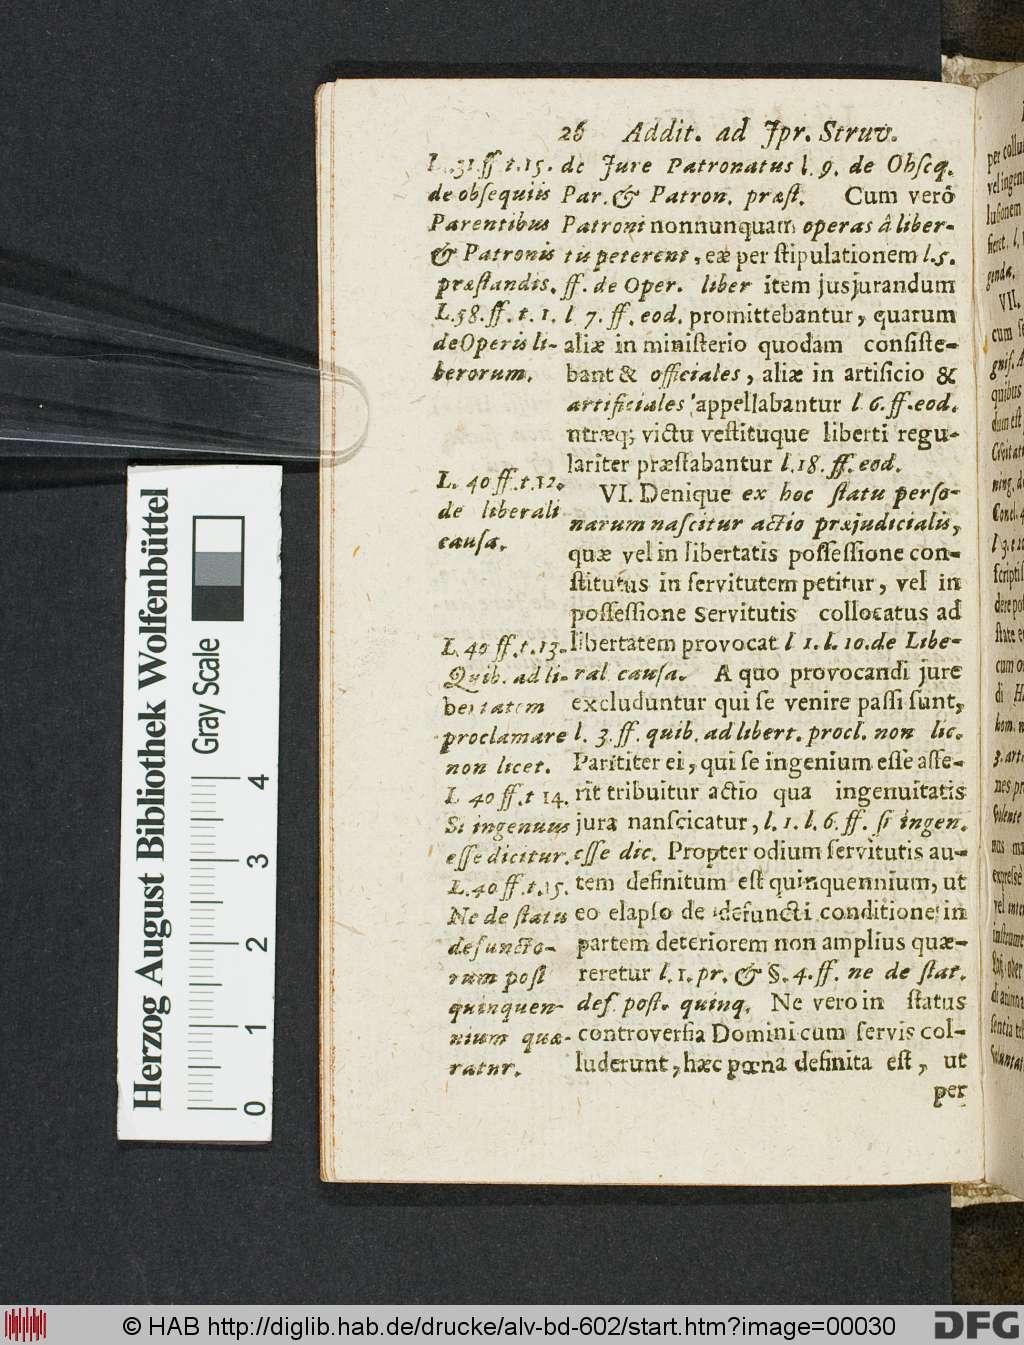 26 Addit. ad Jpr. Struv.
L. 31. ff t. 15.
de obsequiis
Parentibus
& Patronis
præstandis.
L. 58. ff. t. 1.
de Operis li-
berorum.
de Jure Patronatus l. 9. de Obseq.
Par. & Patron. præst. Cum verò
Patroni nonnunquam operas â liber-
tu peterent, eæ per stipulationem l. 5.
ff. de Oper. liber item jusjurandum
l 7. ff. eod. promittebantur, quarum
aliæ in ministerio quodam consiste-
bant & officiales, aliæ in artificio &
artificiales appellabantur l 6. ff. eod.
ntræq; victu vestituque liberti regu-
lariter præstabantur l. 18. ff. eod.
L. 40 ff. t. 12.
de liberali
causa.
VI. Denique ex hoc statu perso-
narum nascitur actio præjudicialis,
quæ vel in libertatis possessione con-
stitutus in servitutem petitur, vel in
possessione Servitutis collocatus ad
libertatem provocat l 1. l. 10. de Libe-
ral causa. A quo provocandi jure
excluduntur qui se venire passi sunt,
l. 3. ff. quib. ad libert. procl. non lic.
Parititer ei, qui se ingenium esse asse-
rit tribuitur actio qua ingenuitatis
jura nanscicatur, l. 1. l. 6. ff. si ingen.
esse dic. Propter odium servitutis au-
tem definitum est quinquennium, ut
eo elapso de defuncti conditione in
partem deteriorem non amplius quæ-
reretur l. 1. pr. & §. 4. ff. ne de stat.
def. post. quinq. Ne vero in status
controversia Domini cum servis col-
luderunt, hæc pœna definita est, ut
per
L. 40 ff. t. 13.
Quib. ad li-
bertatem
proclamare
non licet.
L 40 ff. t 14.
Si ingenuus
esse dicitur.
L. 40 ff. t. 15.
Ne de statu
defuncto-
rum post
quinquen-
nium quæ-
ratur.
per collu
vel ingen
lusionem
genda.
VII.
cum
quibus
dum est
Civitati
scriptis
cum
di
Herzog August Bibliothek Wolfenbüttel
Gray Scale
0 1 2 3 4
© HAB http://diglib.hab.de/drucke/alv-bd-602/start.htm?image=00030
DFG